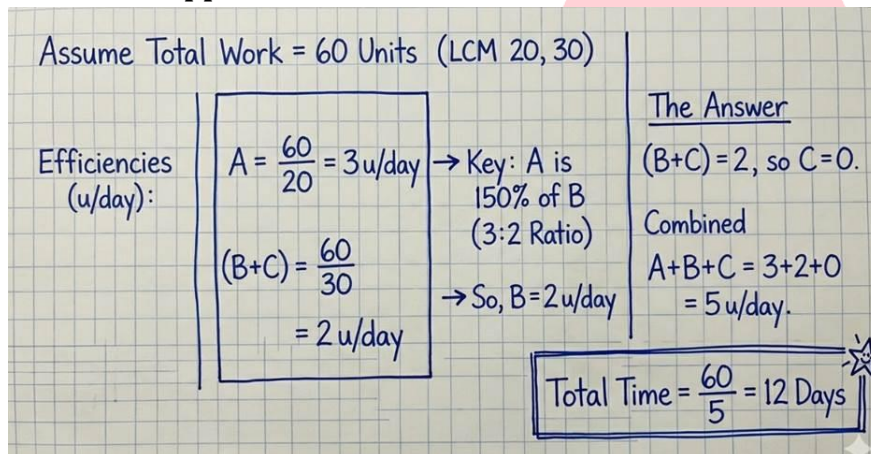 Assume Total Work = 60 Units (LCM 20, 30)
Efficiencies
(u/day):
A = 60/20 = 3u/day
(B+C) = 60/30
= 2 u/day
→ Key: A is
150% of B
(3:2 Ratio)
→ So, B = 2u/day
The Answer
(B+C) = 2, so C=0.
Combined
A+B+C = 3+2+0
= 5u/day.
Total Time = 60/5 = 12 Days